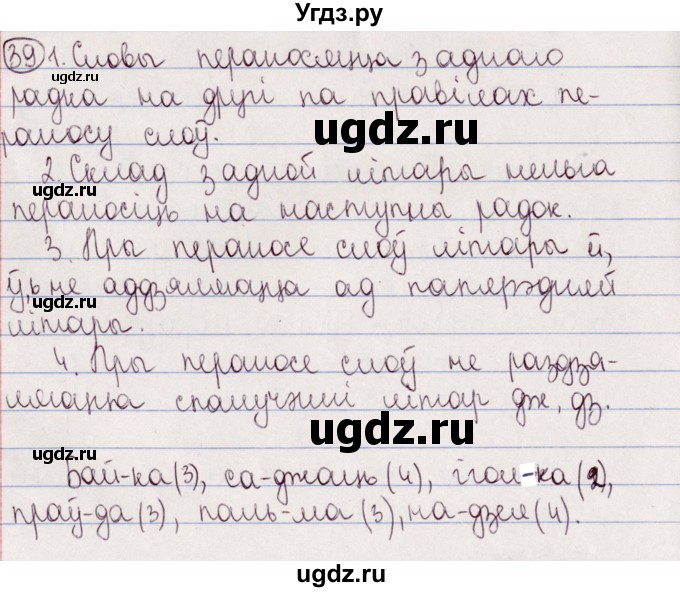 Угдз.ру
39 1. Словы пераносяцца з аднаго
радка на другі па правілах пе-
раносу слоў.
2. Склад з адной літары нельга
пераносіць на наступны радок.
3. Пры пераносе слоў літары й,
ў, ь не аддзяляюцца ад папярэдней
літары.
4. Пры пераносе слоў не раздзя-
ляюцца спалучэнні літар дж, дз.
Бай-ка (3), са-джаць (4), ігол-ка (2),
праў-да (3), паль-ма (3), на-дзея (4).
ugdz.ru
ugdz.ru
ugdz.ru
ugdz.ru
ugdz.ru
ugdz.ru
ugdz.ru
ugdz.ru
ugdz.ru